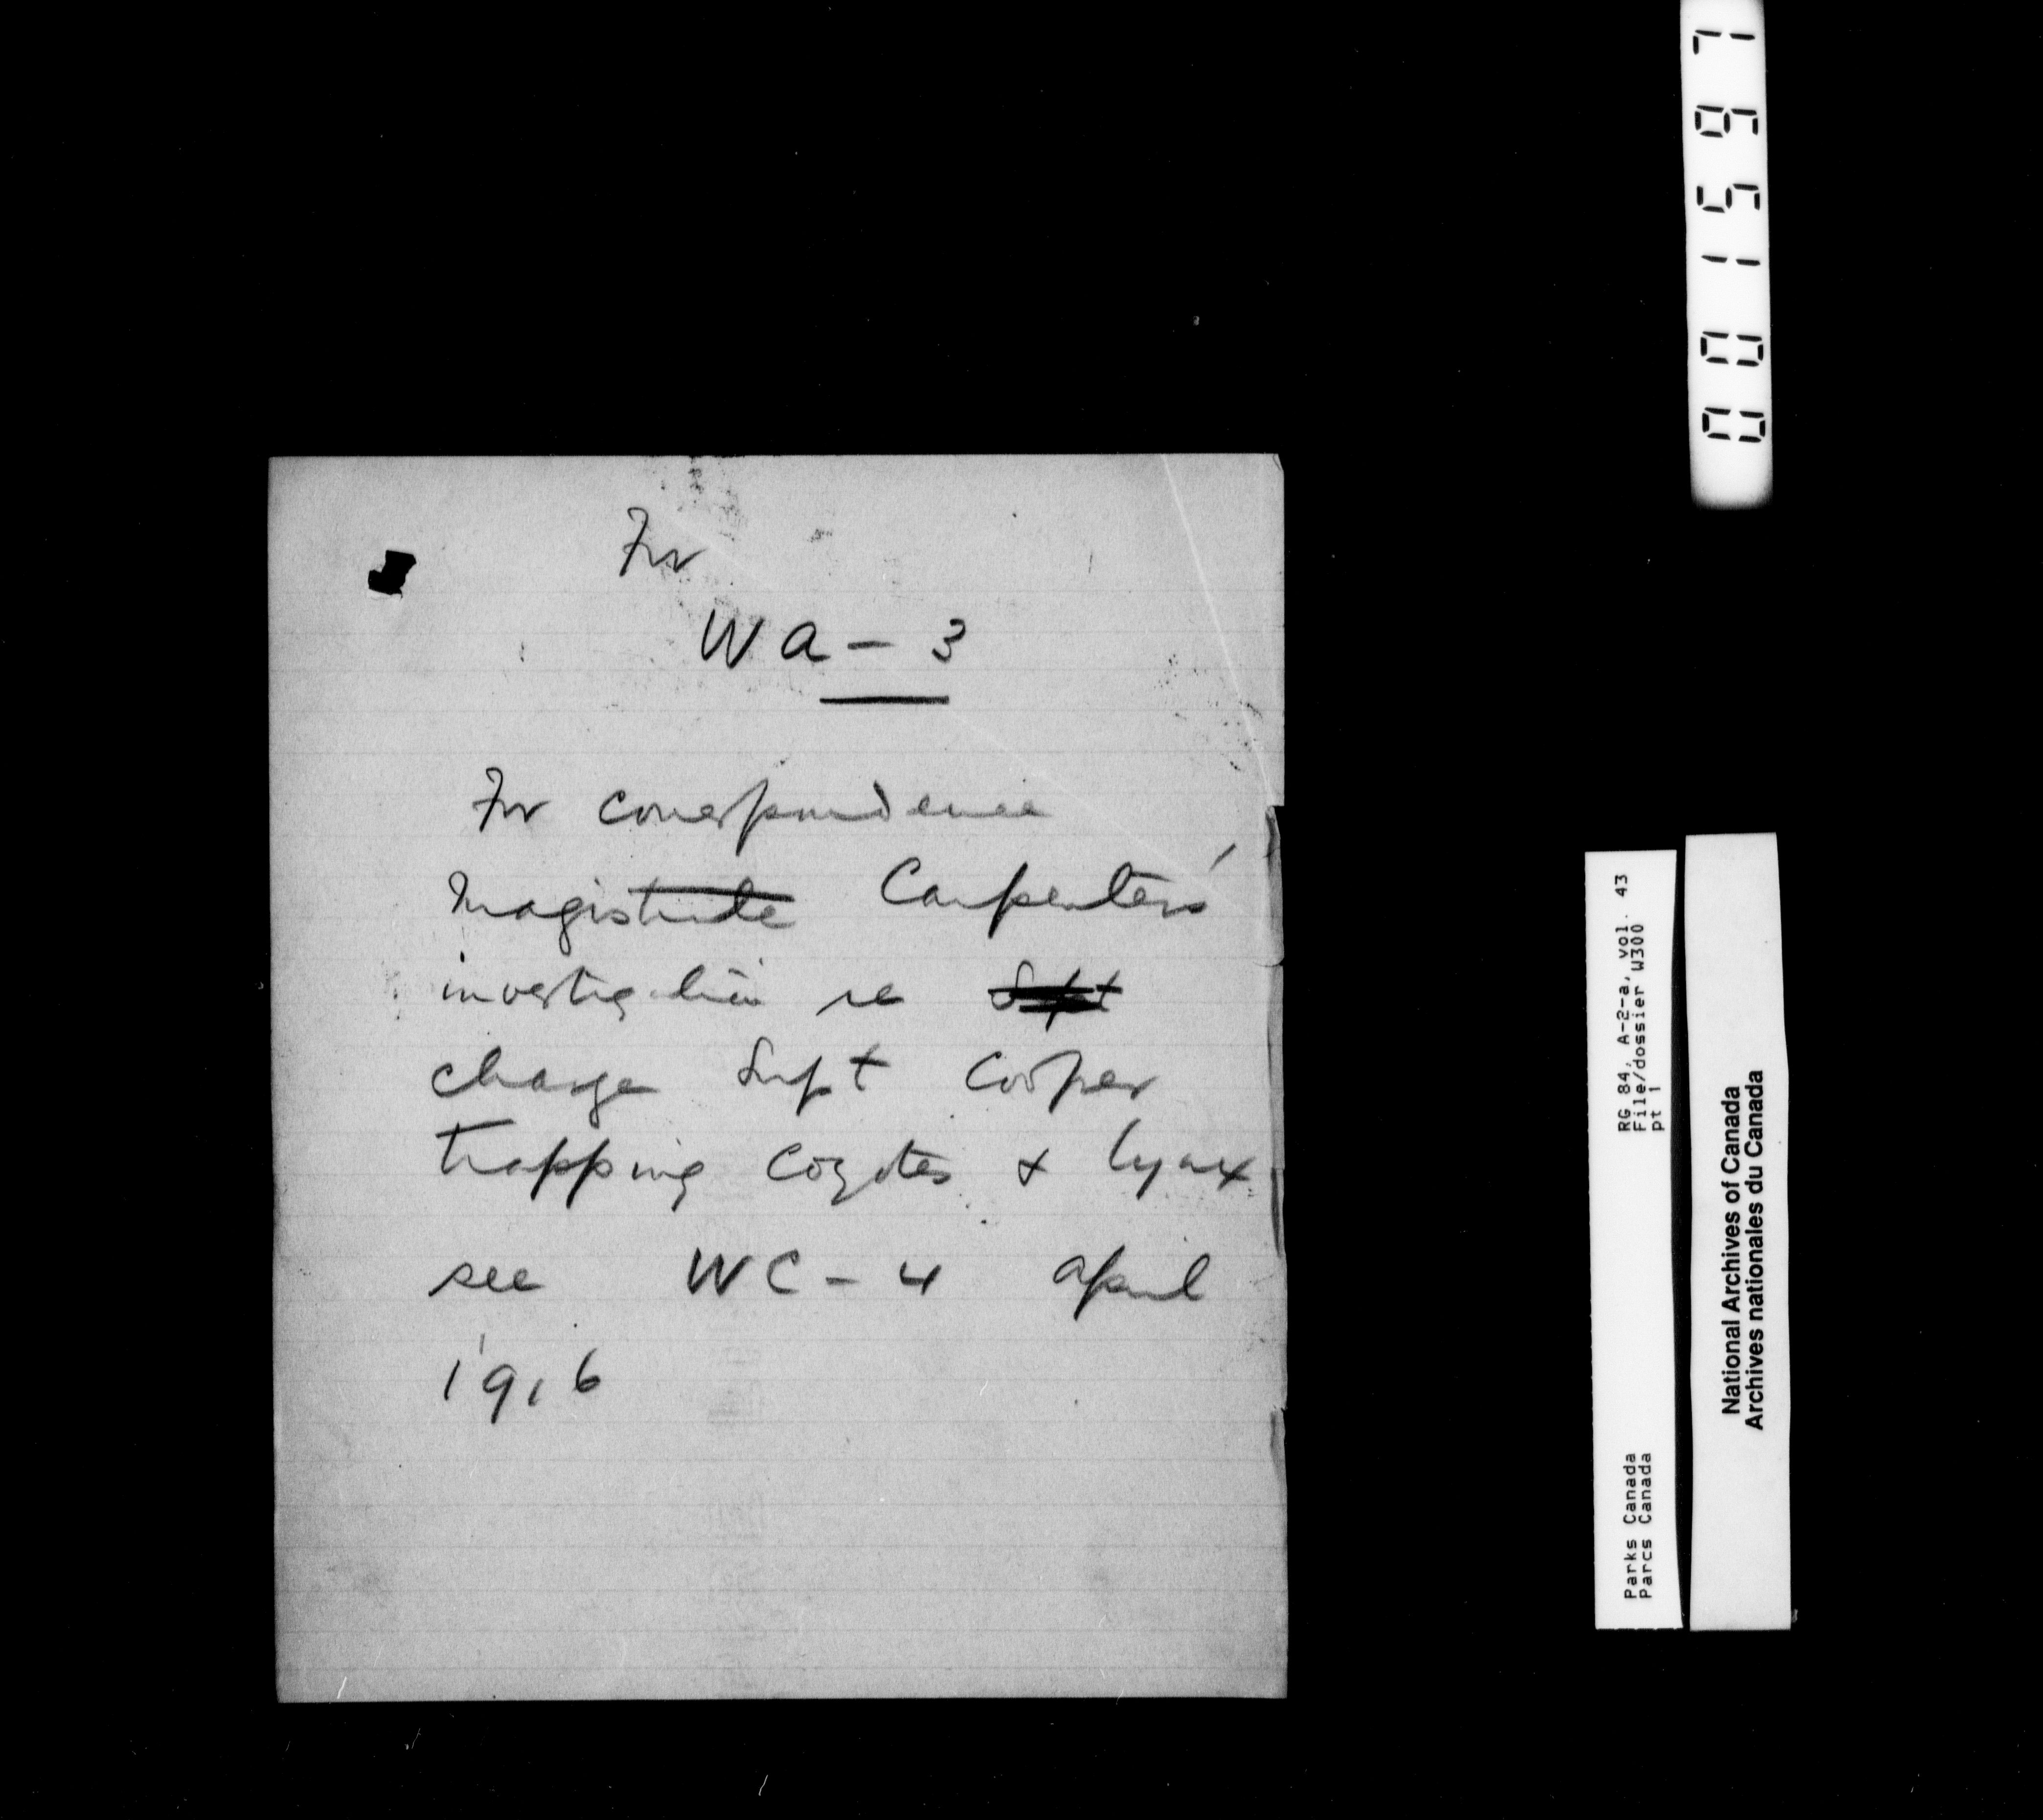 For
Wa - 3
For correspondence
Magistrate Carpenter's
investigation re Supt
charge Supt Cooper
trapping Coyotes & Lynx
see WC - 4 April
1916
001597
RG 84, A-2-a, vol. 43
File/dossier W300
pt 1
Parks Canada
Parcs Canada
National Archives of Canada
Archives nationales du Canada